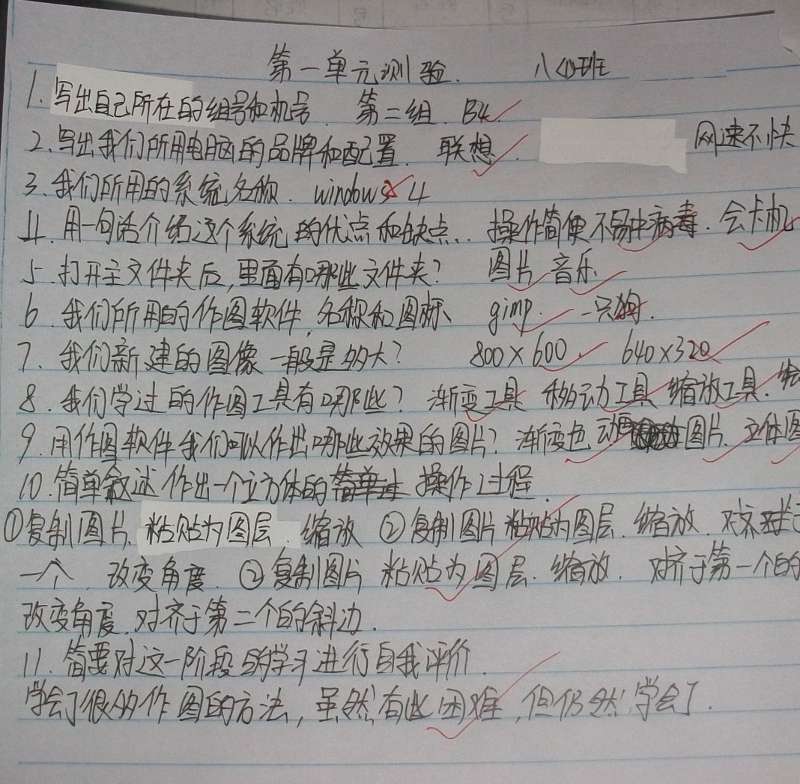 第一单元测验 八(4)班
1. 写出自己所在的组号和机号. 第二组. B4
2. 写出我们所用电脑的品牌和配置. 联想. 网速不快
3. 我们所用的系统名称. windows 4
4. 用一句话介绍这个系统的优点和缺点. 操作简便 不易中病毒. 会卡机
5. 打开主文件夹后,里面有哪些文件夹? 图片 音乐
6. 我们所用的作图软件,名称和图标. gimp. 一只狗.
7. 我们新建的图像一般是多大? 800×600. 640×320
8. 我们学过的作图工具有哪些? 渐变工具 移动工具 缩放工具.
9. 用作图软件我们可以作出哪些效果的图片? 渐变色 动画 图片. 立体图
10. 简单叙述作出一个立方体的 操作过程.
①复制图片.粘贴为图层.缩放 ②复制图片粘贴为图层.缩放.对齐于
一个 改变角度. ③复制图片 粘贴为图层.缩放. 对齐于第一个的
改变角度.对齐于第二个的斜边.
11. 简要对这一阶段的学习进行自我评价.
学会了很多作图的方法,虽然有些困难,但仍然学会了.